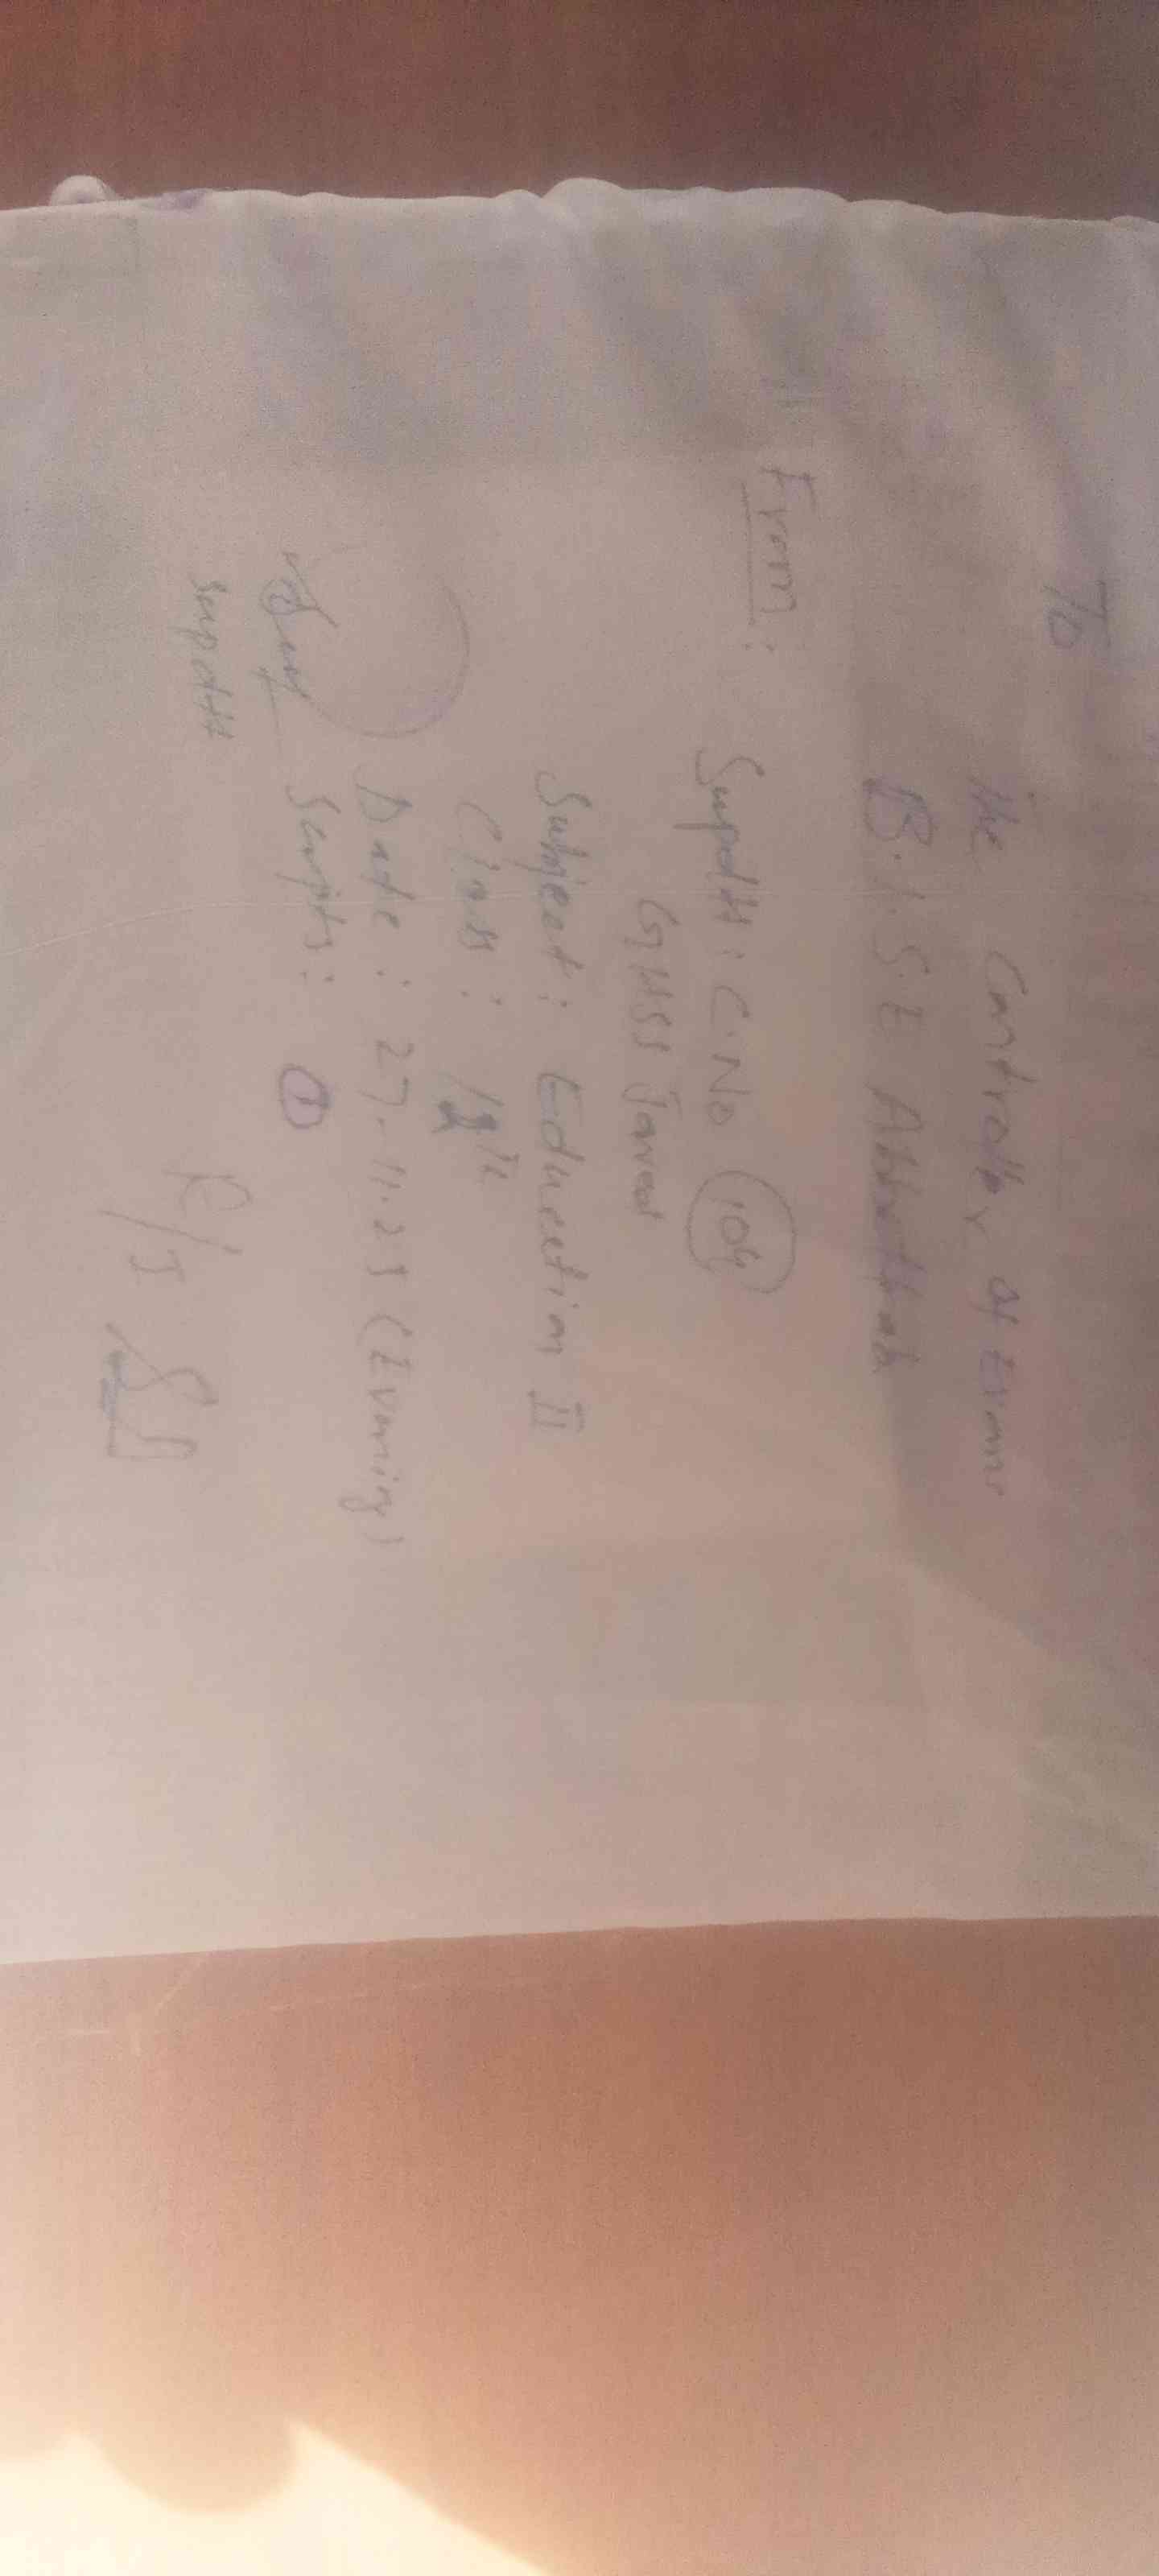 To
the Controller of Exams
B.I.S.E Abbottabad
From:
Supdtt: C.No 109
GHSS Jared
Subject: Education II
Class: 12th
Date: 27.11.25 (Evening)
Scripts: 1
Supdtt
R/I